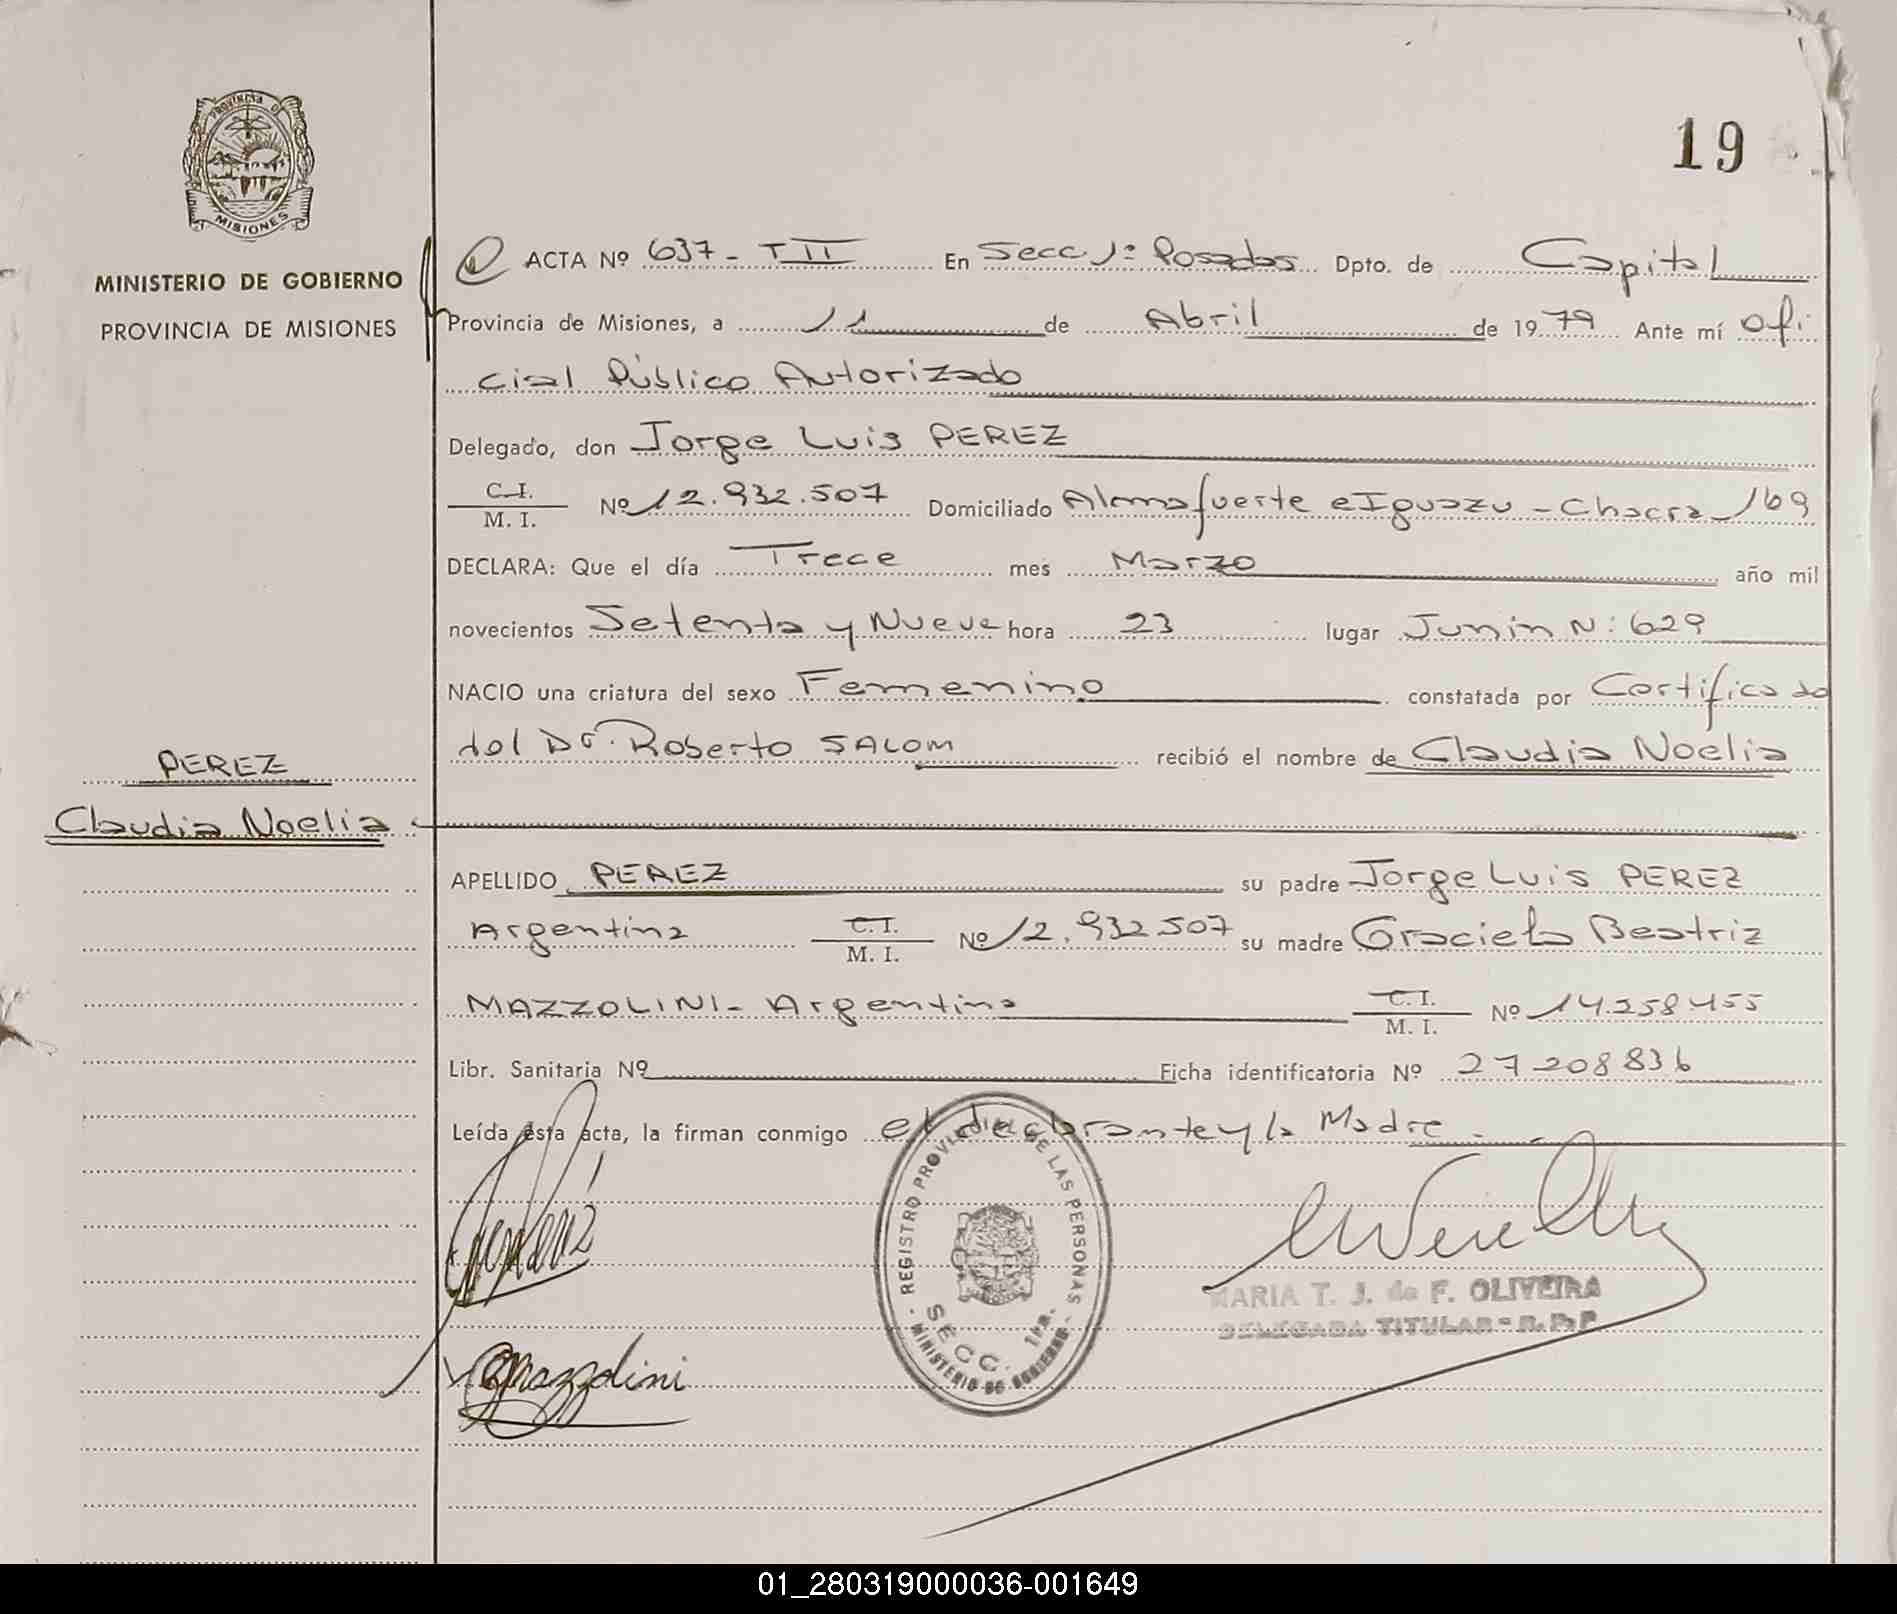 19
PROVINCIA DE
MISIONES
MINISTERIO DE GOBIERNO
PROVINCIA DE MISIONES
ACTA Nº 637 - T II En Secc 1ª Posadas Dpto. de Capital
Provincia de Misiones, a 11 de Abril de 1979 Ante mí Ofi
cial Público Autorizado
Delegado, don Jorge Luis PEREZ
C.I.
M. I. Nº 12.932.507 Domiciliado Almafuerte e Iguazu - Chacra 169
DECLARA: Que el día Trece mes Marzo año mil
novecientos Setenta y Nueve hora 23 lugar Junin Nº 629
NACIO una criatura del sexo Femenino constatada por Certificado
del Dr. Roberto SALOM recibió el nombre de Claudia Noelia
PEREZ
Claudia Noelia
APELLIDO PEREZ su padre Jorge Luis PEREZ
Argentina C.I.
M. I. Nº 12.932.507 su madre Graciela Beatriz
MAZZOLINI - Argentina C.I.
M. I. Nº 14.258.455
Libr. Sanitaria Nº Ficha identificatoria Nº 27.208.836
Leída ésta acta, la firman conmigo el declarante y la Madre
REGISTRO PROVINCIAL DE LAS PERSONAS
SECC. 1ra.
MINISTERIO DE GOBIERNO
MARIA T. J. de F. OLIVEIRA
DELEGADA TITULAR - R. P. P
Mazzolini
01_280319000036-001649